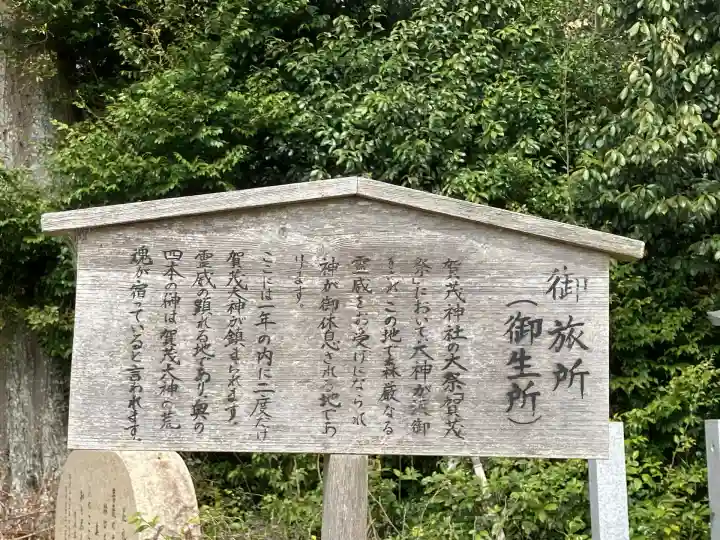 御旅所
（御生所）
賀茂神社の大祭「賀茂
祭」において大神が渡御
され この地で森厳なる
霊威をお受けになられ
神が御休息される地であ
ります。
ここには一年の内に二度だけ
賀茂大神が鎮まられます。
霊威の顕れる地であり奥の
四本の榊は賀茂大神の荒
魂が宿っていると言われます。